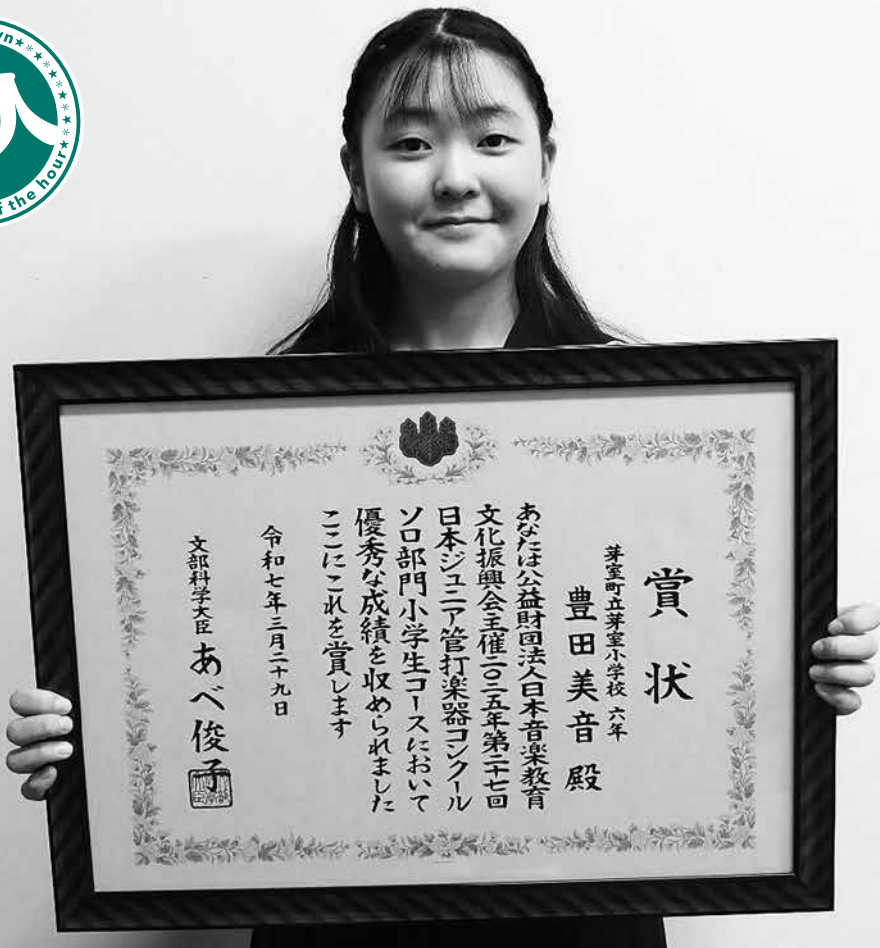 人
of the hour
賞状
芽室町立芽室小学校 六年
豊田美音 殿
あなたは公益財団法人日本音楽教育
文化振興会主催二〇二五年第二十七回
日本ジュニア管打楽器コンクール
ソロ部門小学生コースにおいて
優秀な成績を収められました
ここにこれを賞します
令和七年三月二十九日
文部科学大臣 あべ俊子